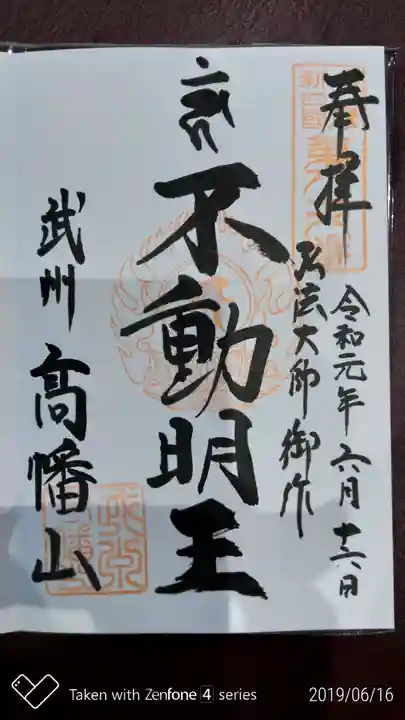 奉拝
令和元年六月十六日
弘法大師御作
不動明王
武州 高幡山
Taken with Zenfone 4 series
2019/06/16